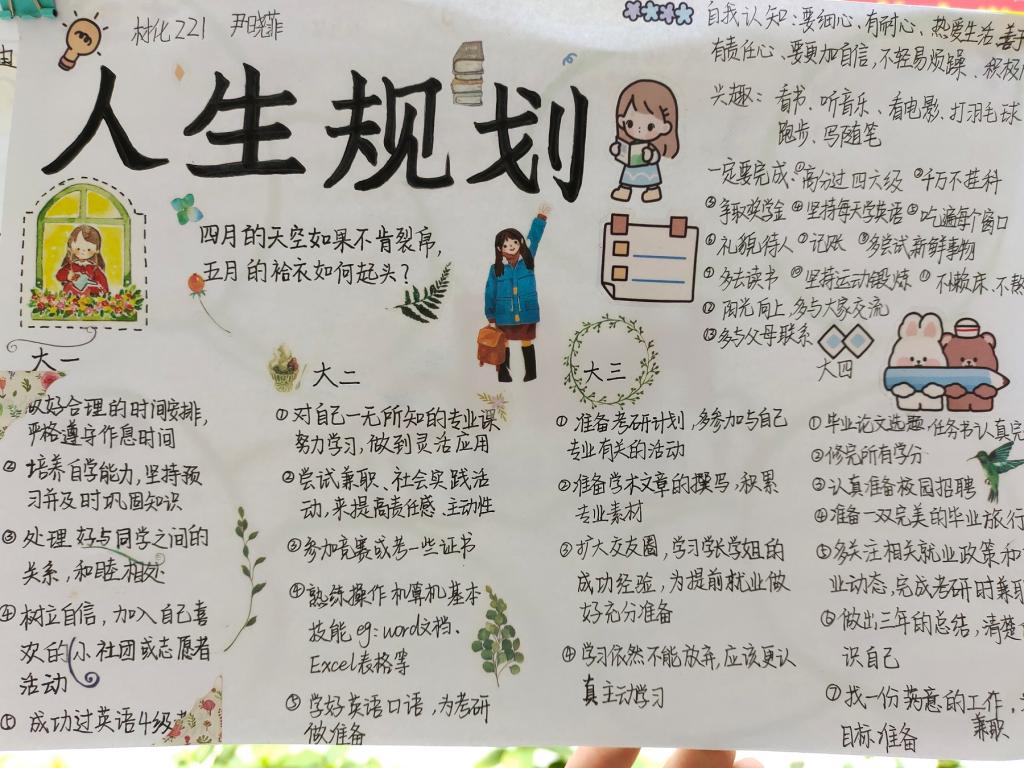 材化221 尹晓菲
人生规划
四月的天空如果不肯裂帛，
五月的袷衣如何起头？
自我认知：要细心、有耐心、热爱生活、善于
有责任心、要更加自信，不轻易烦躁、积极
兴趣：看书、听音乐、看电影、打羽毛球
跑步、写随笔
一定要完成：①高分过四六级 ②千万不挂科
③争取奖学金 ④坚持每天学英语 ⑤吃遍每个窗口
⑥礼貌待人 ⑦记账 ⑧多尝试新鲜事物
⑨多去读书 ⑩坚持运动锻炼 ⑪不赖床、不熬
⑫阳光向上，多与大家交流
⑬多与父母联系
大一
做好合理的时间安排，
严格遵守作息时间
②培养自学能力，坚持预
习并及时巩固知识
③处理好与同学之间的
关系，和睦相处
④树立自信，加入自己喜
欢的小社团或志愿者
活动
⑤成功过英语4级
大二
①对自己一无所知的专业课
努力学习，做到灵活应用
②尝试兼职、社会实践活
动，来提高责任感、主动性
③参加竞赛或考一些证书
④熟练操作和算机基本
技能 eg：word文档、
Excel表格等
⑤学好英语口语，为考研
做准备
大三
①准备考研计划，多参加与自己
专业有关的活动
②准备学术文章的撰写，积累
专业素材
③扩大交友圈，学习学长学姐的
成功经验，为提前就业做
好充分准备
④学习依然不能放弃，应该更认
真主动学习
大四
①毕业论文选题，任务书认真完
②修完所有学分
③认真准备校园招聘
④准备一双完美的毕业旅行
⑤多关注相关就业政策和
业动态，完成考研时兼职
⑥做出三年的总结，清楚
识自己
⑦找一份满意的工作，
兼职
目标准备